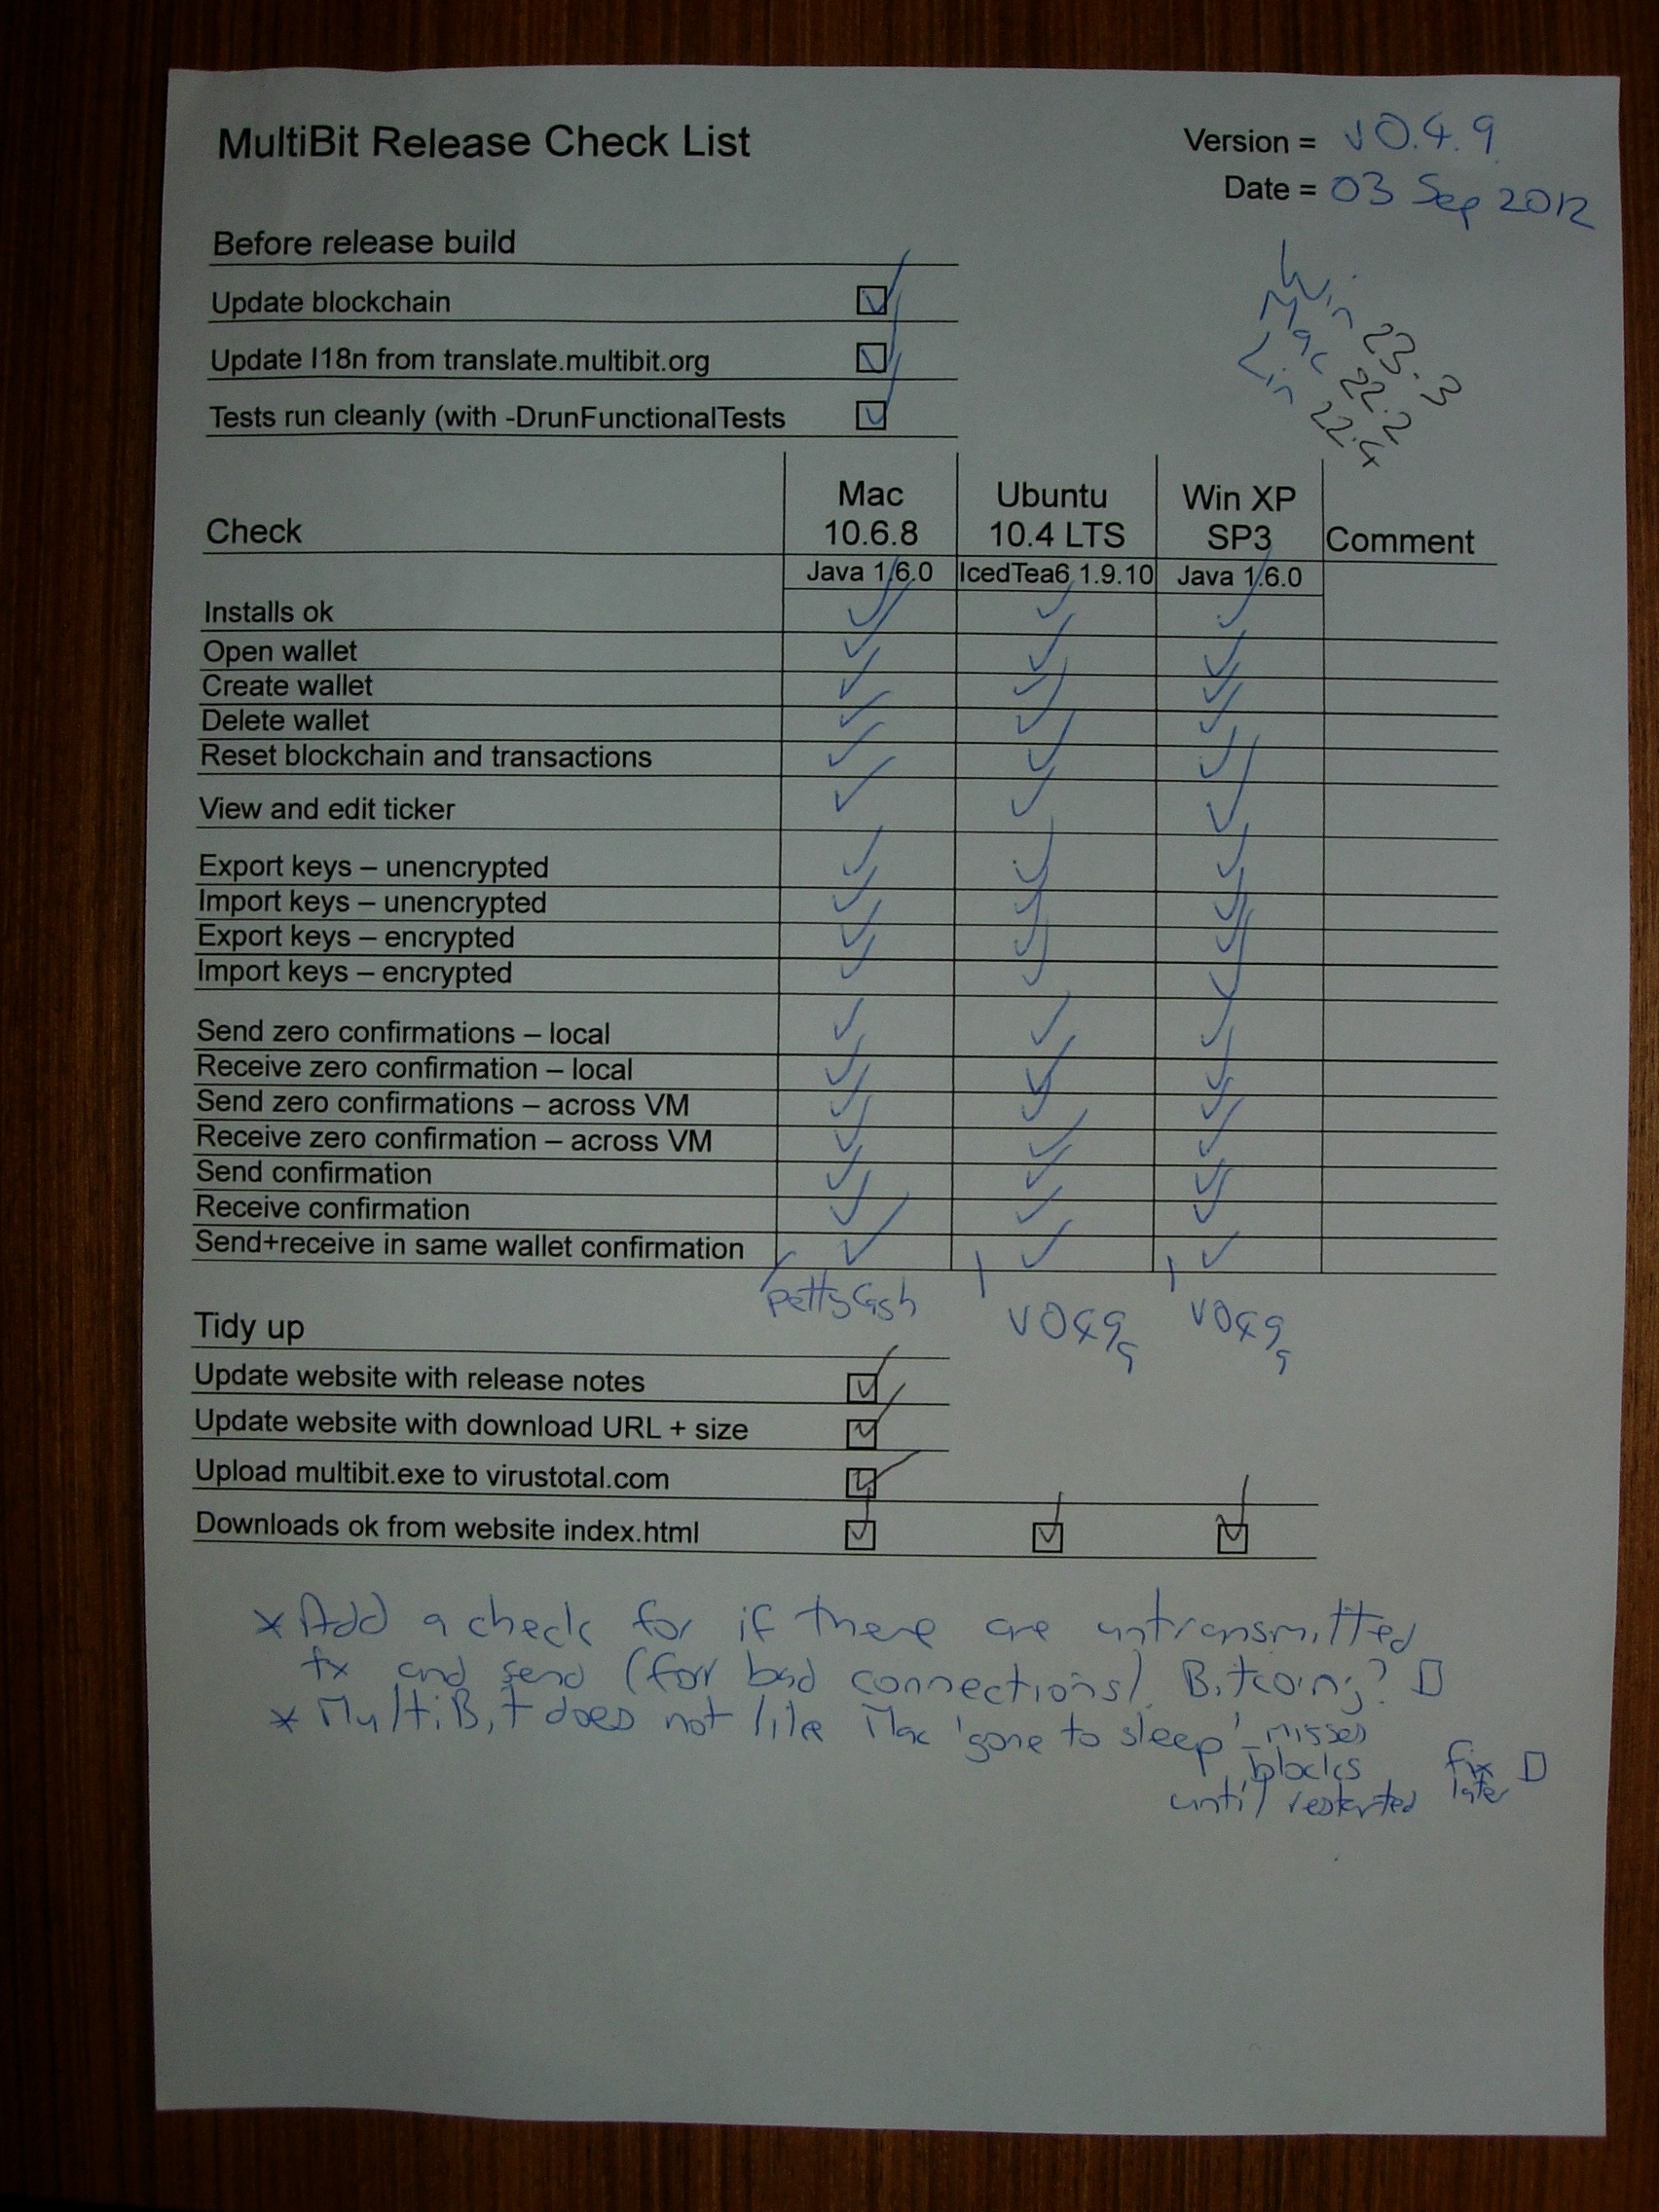 MultiBit Release Check List
Version = v0.4.9
Date = 03 Sep 2012
Before release build
Update blockchain
Update I18n from translate.multibit.org
Tests run cleanly (with -DrunFunctionalTests
Win 23.3
Mac 22.2
Lin 22.4
Check Mac 10.6.8 Ubuntu 10.4 LTS Win XP SP3 Comment
Java 1.6.0 IcedTea6 1.9.10 Java 1.6.0
Installs ok ✓ ✓ ✓
Open wallet ✓ ✓ ✓
Create wallet ✓ ✓ ✓
Delete wallet ✓ ✓ ✓
Reset blockchain and transactions ✓ ✓ ✓
View and edit ticker ✓ ✓ ✓
Export keys – unencrypted ✓ ✓ ✓
Import keys – unencrypted ✓ ✓ ✓
Export keys – encrypted ✓ ✓ ✓
Import keys – encrypted ✓ ✓ ✓
Send zero confirmations – local ✓ ✓ ✓
Receive zero confirmation – local ✓ ✓ ✓
Send zero confirmations – across VM ✓ ✓ ✓
Receive zero confirmation – across VM ✓ ✓ ✓
Send confirmation ✓ ✓ ✓
Receive confirmation ✓ ✓ ✓
Send+receive in same wallet confirmation ✓ ✓ ✓
PettyCash v049 v049
Tidy up
Update website with release notes
Update website with download URL + size
Upload multibit.exe to virustotal.com
Downloads ok from website index.html
* Add a check for if there are untransmitted
tx and send (for bad connections). Bitcoinj?
* MultiBit does not like Mac 'gone to sleep' - misses
blocks fix
until restarted later